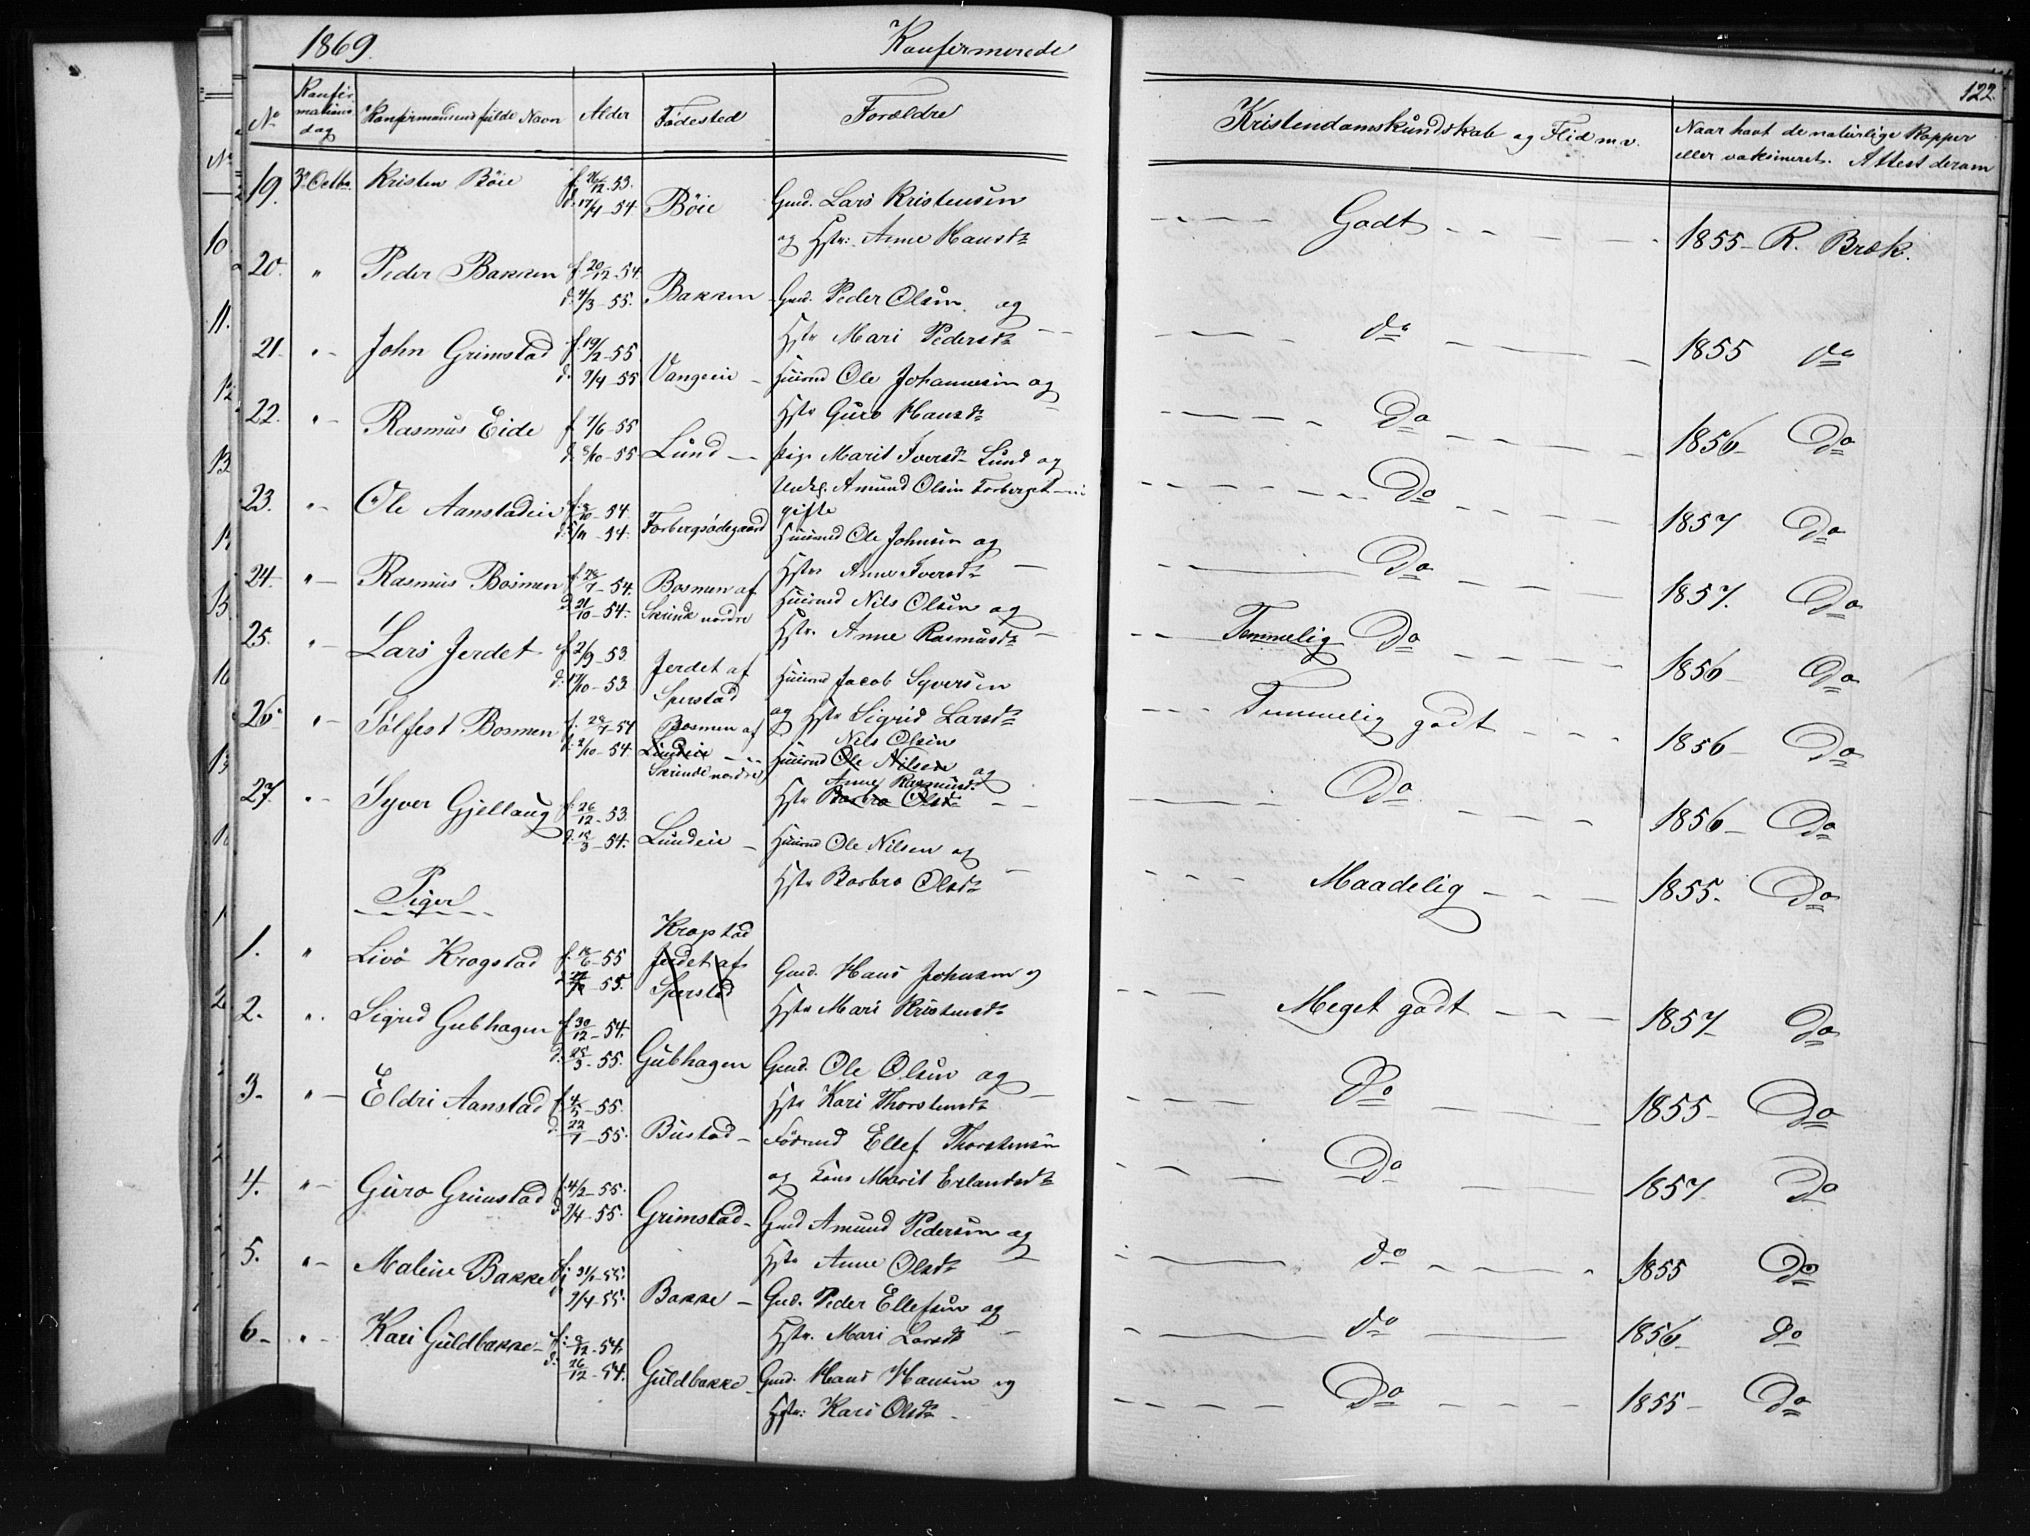 1869. Konfirmerede
122.
No Konfirmations dag Konfirmandens fulde Navn Alder Fødested Forældre Kristendomskundskab og Flid m.v. Naar havt de naturlige Kopper eller vaksineret. Attest derom
19. 3 Octbr. Kristen Böie f. 26/12 53. Böie Gmd. Lars Kristensen
d. 17/4 - 54 og Hstr: Anne Hansdr Godt 1855 - R. Bræk.
20. " Peder Bakken f. 20/12 - 54 Bakken Gmd. Peder Olsen og
d. 4/3 - 55. Hstr Mari Pedersdr do 1855 do
21. " John Grimstad f. 19/2 - 55 Vangeie Huusmd Ole Johannesen og
d. 9/4 - 55 Hstr Guro Hansdr Do 1856 Do
22. " Rasmus Eide f. 7/6 - 55 Lund Pige Marit Iversdr Lund og
d. 8/10 - 55 Unkg. Amund Olsen Forberget
gifte Do 1857 Do
23. " Ole Aanstadeie - 54. Forbergsödegaard Huusmd Ole Johnsen og
- 54. Hstr Anne Iversdr Do 1857. Do
24. " Rasmus Bosmen f. 28/7 - 54. Bosmen af Huusmd Nils Olsen og
d. 21/10 - 54. Skrinde nordre Hstr. Anne Rasmusdr Temmelig Do 1856 Do
25. " Lars Jerdet f. 2/9 - 53. Jerdet af Huusmd Jacob Syversen
d. 17/10 - 53. Sperstad og Hstr Sigrid Larsdr Temmelig godt 1856 Do
26. " Sölfest Bosmen f. 28/7 - 54 Bosmen af Nils Olsen
/10 - 54. Lundeie Huusmd Ole Nilsen og
Skrinde nordre Anne Rasmusdr
Hstr Barbro Olsdr Do 1856 - Do
27. " Syver Gjellaug f. 26/12 - 53. Lundeie Huusmd Ole Nilsen og
d. /3 - 54. Hstr Barbro Olsdr Maadelig 1855. Do
Piger
1. " Livö Krogstad - 55 Krogstad
Jerdet af Gmd. Hans Johnsen og
- 55. Sperstad Hstr Mari Kristensdr Meget godt 1857 Do
2. " Sigrid Gubhagen f. 30/12 - 54. Gubhagen Gmd. Ole Olsen og
d. 25/3 - 55. Hstr Kari Thorstensdr Do 1855 - Do
3. " Eldri Aanstad - 55. Bustad Föderaad Ellef Thorstensen
d. 22/7 - 55. og Kone Marit Erlandsdr Do 1857 Do
4. " Guro Grimstad f. 4/2 - 55. Grimstad Gmd Amund Pedersen og
d. 9/4 - 55. Hstr Anne Olsdr do 1855 Do
5. " Malene Bakke f. 31/1 - 55. Bakke Gmd. Peder Ellefsen og
9/4 - 55. Hstr. Mari Larsdr do 1856 do
6 - " Kari Guldbakke f. 2/12 - 54. Guldbakke Gmd. Hans Hansen og
d. 26/12 - 54. Hstr: Kari Olsdr Do 1855 - Do